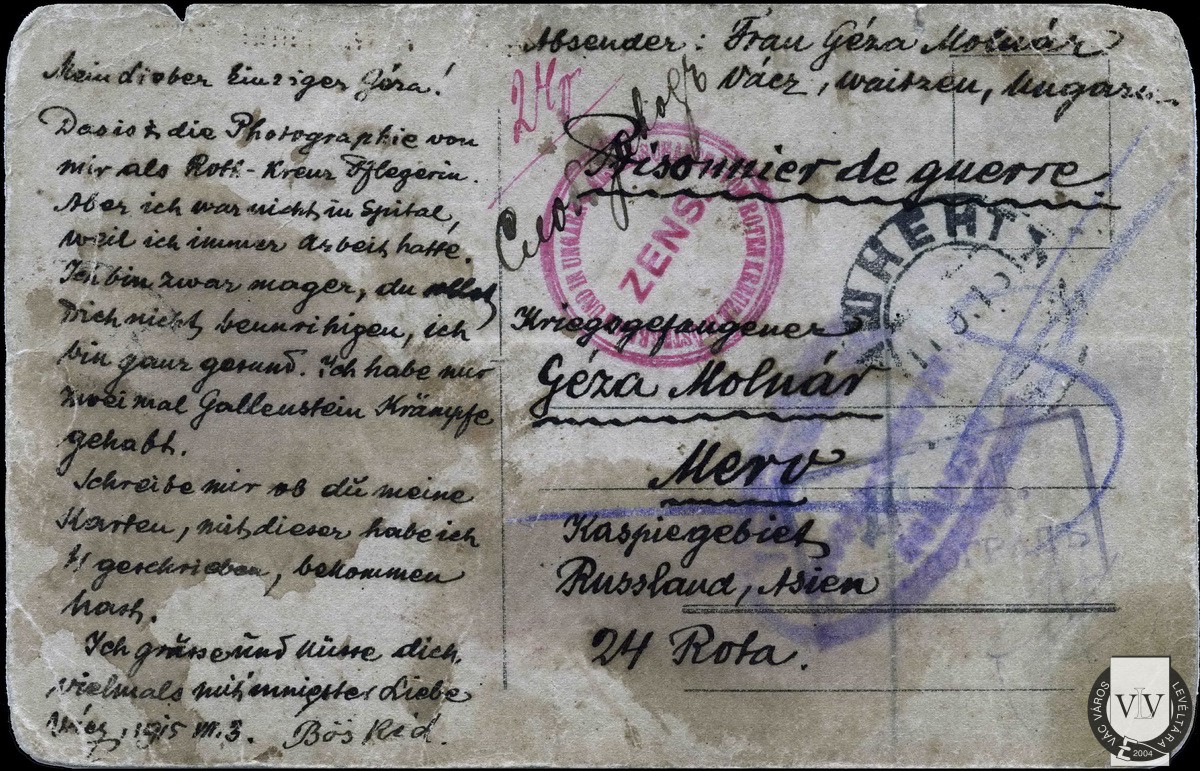 Mein lieber einziger Géza!
Das ist die Photographie von
mir als Roth-Kreuz Pflegerin.
Aber ich war nicht in Spital,
weil ich immer Arbeit hatte.
Ich bin zwar mager, du sollst
Dich nicht beunrihigen, ich
bin ganz gesund. Ich habe nur
zweimal Gallenstein Krämpfe
gehabt.
Schreibe mir ob du meine
Karten, mit dieser habe ich
geschrieben, bekommen
hast.
Ich grüsse und küsse dich
vielmals mit innigster Liebe
Vácz, 1915 III. 3. Bös Réd.
Absender: Frau Géza Molnár
Vácz, Waitzen, Ungarn
24
Prisonnier de guerre.
ZENS
ROTEN KREUZ
Kriegsgefangener
Géza Molnár
Merv
Kaspiegebiet
Russland, Asien
24 Rota.
VÁC VÁROS LEVÉLTÁRA
VLV
2004